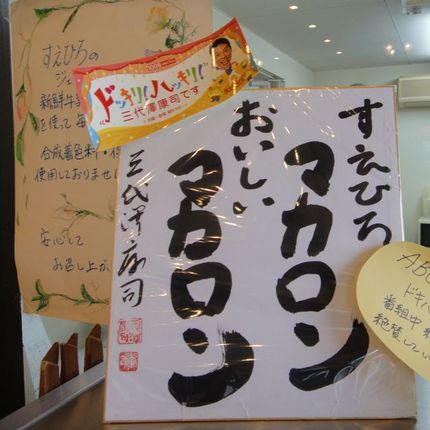 すえひろの
ジェ
新鮮牛
を使って毎
合成着色料・保
使用しておりませ
安心して
お召し上が
ドッキリ!ハッキリ!
三代澤康司です
すえひろ
マカロン
おいしい
マカロン
三代澤康司
ABC
ドキハ
番組中
絶賛してい